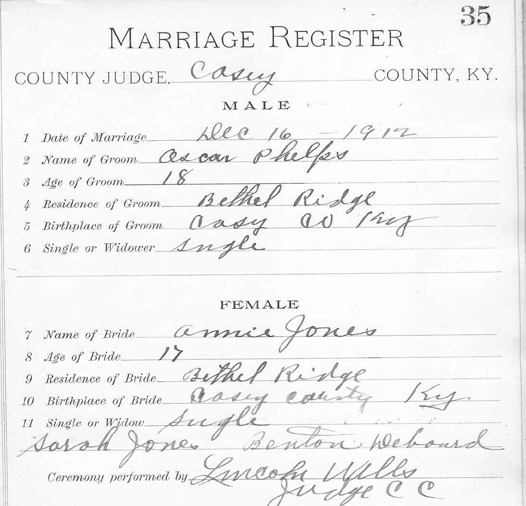 35
MARRIAGE REGISTER
COUNTY JUDGE, Casey COUNTY, KY.
MALE
1 Date of Marriage Dec 16 - 1912
2 Name of Groom Oscar Phelps
3 Age of Groom 18
4 Residence of Groom Bethel Ridge
5 Birthplace of Groom Casy Co Ky
6 Single or Widower Single
FEMALE
7 Name of Bride Annie Jones
8 Age of Bride 17
9 Residence of Bride Bethel Ridge
10 Birthplace of Bride Casey County Ky.
11 Single or Widow Single
Sarah Jones Benton
Ceremony performed by Lincoln Wells
Judge C C